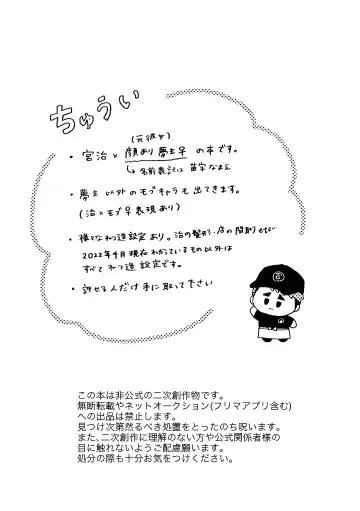 ちゅうい
(元彼女)
・宮治×顔あり夢主♀の本です。
↳名前表記は苗字なまえ
・夢主以外のモブキャラも出てきます。
(治×モブ♀表現あり)
・様々なねつ造設定あり。治の整形・店の間取りetc
2022年9月現在わかっているもの以外は
すべてねつ造設定です。
・許せる人だけ手に取って下さい
この本は非公式の二次創作物です。
無断転載やネットオークション(フリマアプリ含む)
への出品は禁止します。
見つけ次第然るべき処置をとったのち呪います。
また、二次創作に理解のない方や公式関係者様の
目に触れないようご配慮願います。
処分の際も十分お気をつけください。